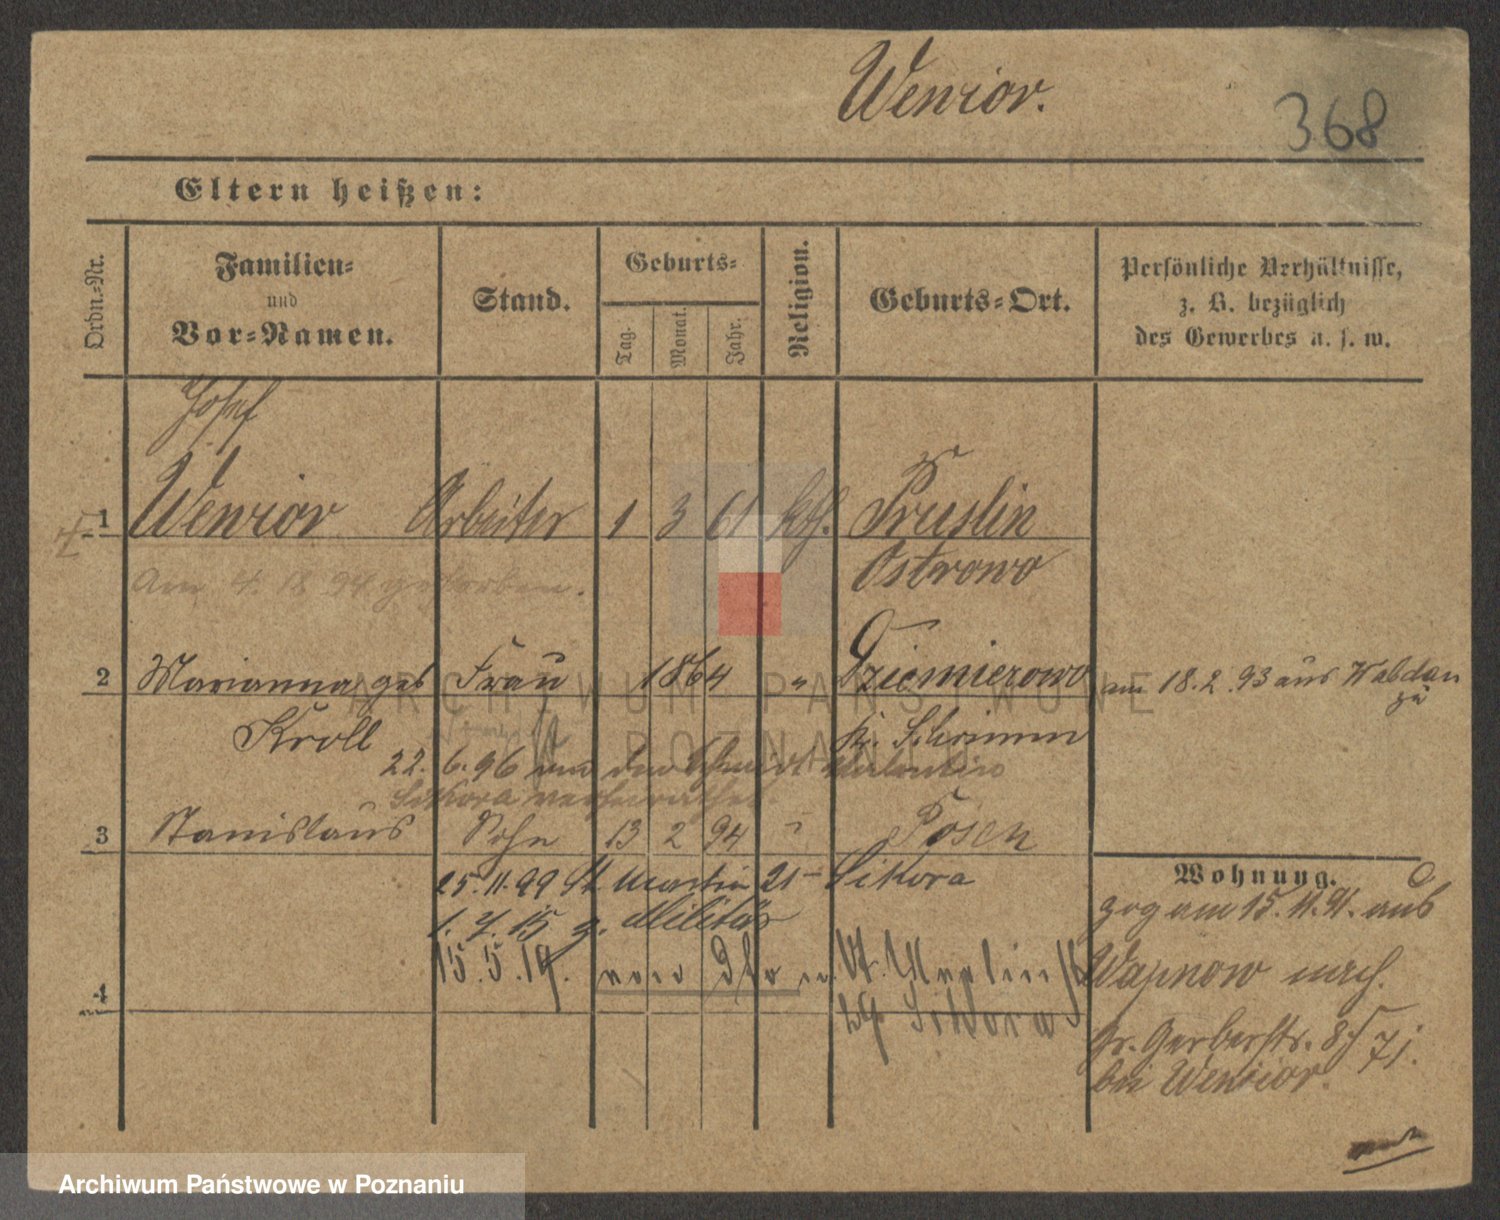 Wenzior.
368
Eltern heißen:
Ordn.-Nr.
Familien-
und
Vor-Namen.
Stand.
Geburts-
Tag.
Monat.
Jahr.
Religion.
Geburts-Ort.
Persönliche Verhältnisse,
z. B. bezüglich
des Gewerbes u. s. w.
Josef
1 Wenzior Arbeiter 1 3 61 kth. Pruslin
Ostrowo
Am 4. 18 94 gestorben.
2 Marianna geb Frau 1864 " Dziemierowo am 18.2.93 aus Wabdan
zu
Kroll
Kr. Schrimm
22. 6. 96 von den Valentin
Sikora verheirathet
3 Stanislaus Sohn 13 2 94 Posen
25.11.99 St. Martin 21 Sikora
1. 7. 15 z. Militär
15.5.19. von St. Martin
4
bei Sikora
Wohnung.
zog am 15.11.91. aus
Wapnow nach.
Gr. Gerberstr. 8
bei Wenzior.
ARCHIWUM PAŃSTWOWE
POZNANIU
Archiwum Państwowe w Poznaniu